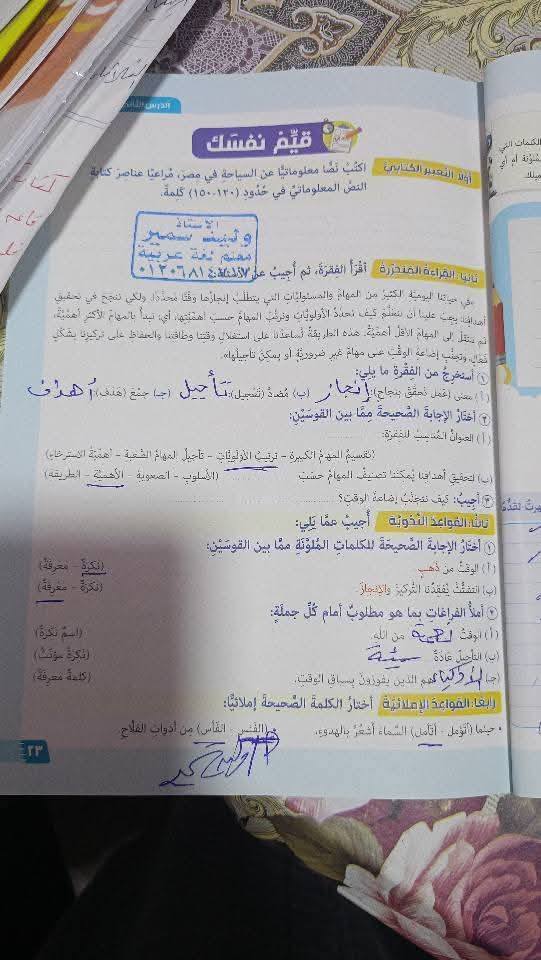 الدرس الثاني
قيّم نفسك
أولًا: التعبير الكتابي اكتُبْ نصًّا معلوماتيًّا عن السياحةِ في مصرَ، مُراعيًا عناصرَ كتابةِ
النصِّ المعلوماتيِّ في حُدودِ (١٢٠-١٥٠) كلمةً.
الاستاذ
وليد سمير
معلم لغة عربية
ثانيًا: القراءة المتحررة أقْرَأُ الفِقرَةَ، ثم أُجيبُ عن الأسئلة:
«في حياتنا اليوميةِ الكثيرُ من المهامِّ والمسئولياتِ التي يتطلَّبُ إنجازُها وقتًا مُحدَّدًا، ولكي ننجحَ في تحقيقِ
أهدافِنا يجبُ علينا أن نتعلَّمَ كيف نحدِّدُ الأولوياتِ ونرتِّبُ المهامَّ حسبَ أهميَّتِها، أي نبدأُ بالمهامِّ الأكثرِ أهميَّةً،
ثم ننتقلُ إلى المهامِّ الأقلِّ أهميَّةً، هذه الطريقةُ تُساعدُنا على استغلالِ وقتِنا وطاقتِنا والحفاظِ على تركيزِنا بشكلٍ
فعَّالٍ، وتجنُّبِ إضاعةِ الوقتِ على مهامَّ غيرِ ضروريةٍ أو يمكنُ تأجيلُها».
١ أستخرجُ من الفِقرةِ ما يلي:
(أ) معنى (عَمَل تَحقَّق بنجاح): إنجاز (ب) مُضادَّ (تَعْجيل): تأجيل (جـ) جمْعَ (هَدَف): أهداف
٢ أختارُ الإجابةَ الصَّحيحةَ مِمَّا بين القوسَيْنِ:
(أ) العنوانُ المُناسِبُ للفِقرةِ:
(تقسيمُ المهامِّ الكبيرةِ – ترتيبُ الأولوياتِ – تأجيلُ المهامِّ الصَّعبةِ – أهميَّةُ الاسترخاءِ)
(ب) لتحقيقِ أهدافِنا يُمكنُنا تصنيفُ المهامِّ حسْبَ (الأسلوب - الصعوبة - الأهمية - الطريقة)
٣ أجيبُ: كيف نتجنَّبُ إضاعةَ الوقتِ؟
ثالثًا: القواعد النحوية أُجيبُ عمَّا يَلِي:
١ أختارُ الإجابةَ الصَّحيحةَ للكلماتِ المُلوَّنةِ ممَّا بين القوسَيْنِ:
(أ) الوقتُ من ذَهبٍ. (نكرةٌ – معرفةٌ)
(ب) التشتُّتُ يُفقِدُنا التَّركيزَ والإنجازَ. (نكرةٌ – معرفةٌ)
٢ أملأُ الفراغاتِ بما هو مطلوبٌ أمامَ كلِّ جملةٍ:
(أ) الوقتُ من اللهِ. (اسمٌ نكرةٌ)
(ب) التأجيلُ عادةٌ سيئة (نكرةٌ مؤنثٌ)
(جـ) الأذكياء هم الذين يفوزونَ بسباقِ الوقتِ. (كلمةٌ معرفةٌ)
رابعًا: القواعد الإملائية أختارُ الكلمةَ الصَّحيحةَ إملائيًّا:
• حينما (أتؤمل - أتأمل) السَّماءَ أشعُرُ بالهدوءِ. • (الفَئس - الفَأس) مِن أدواتِ الفلَّاحِ
٢٣